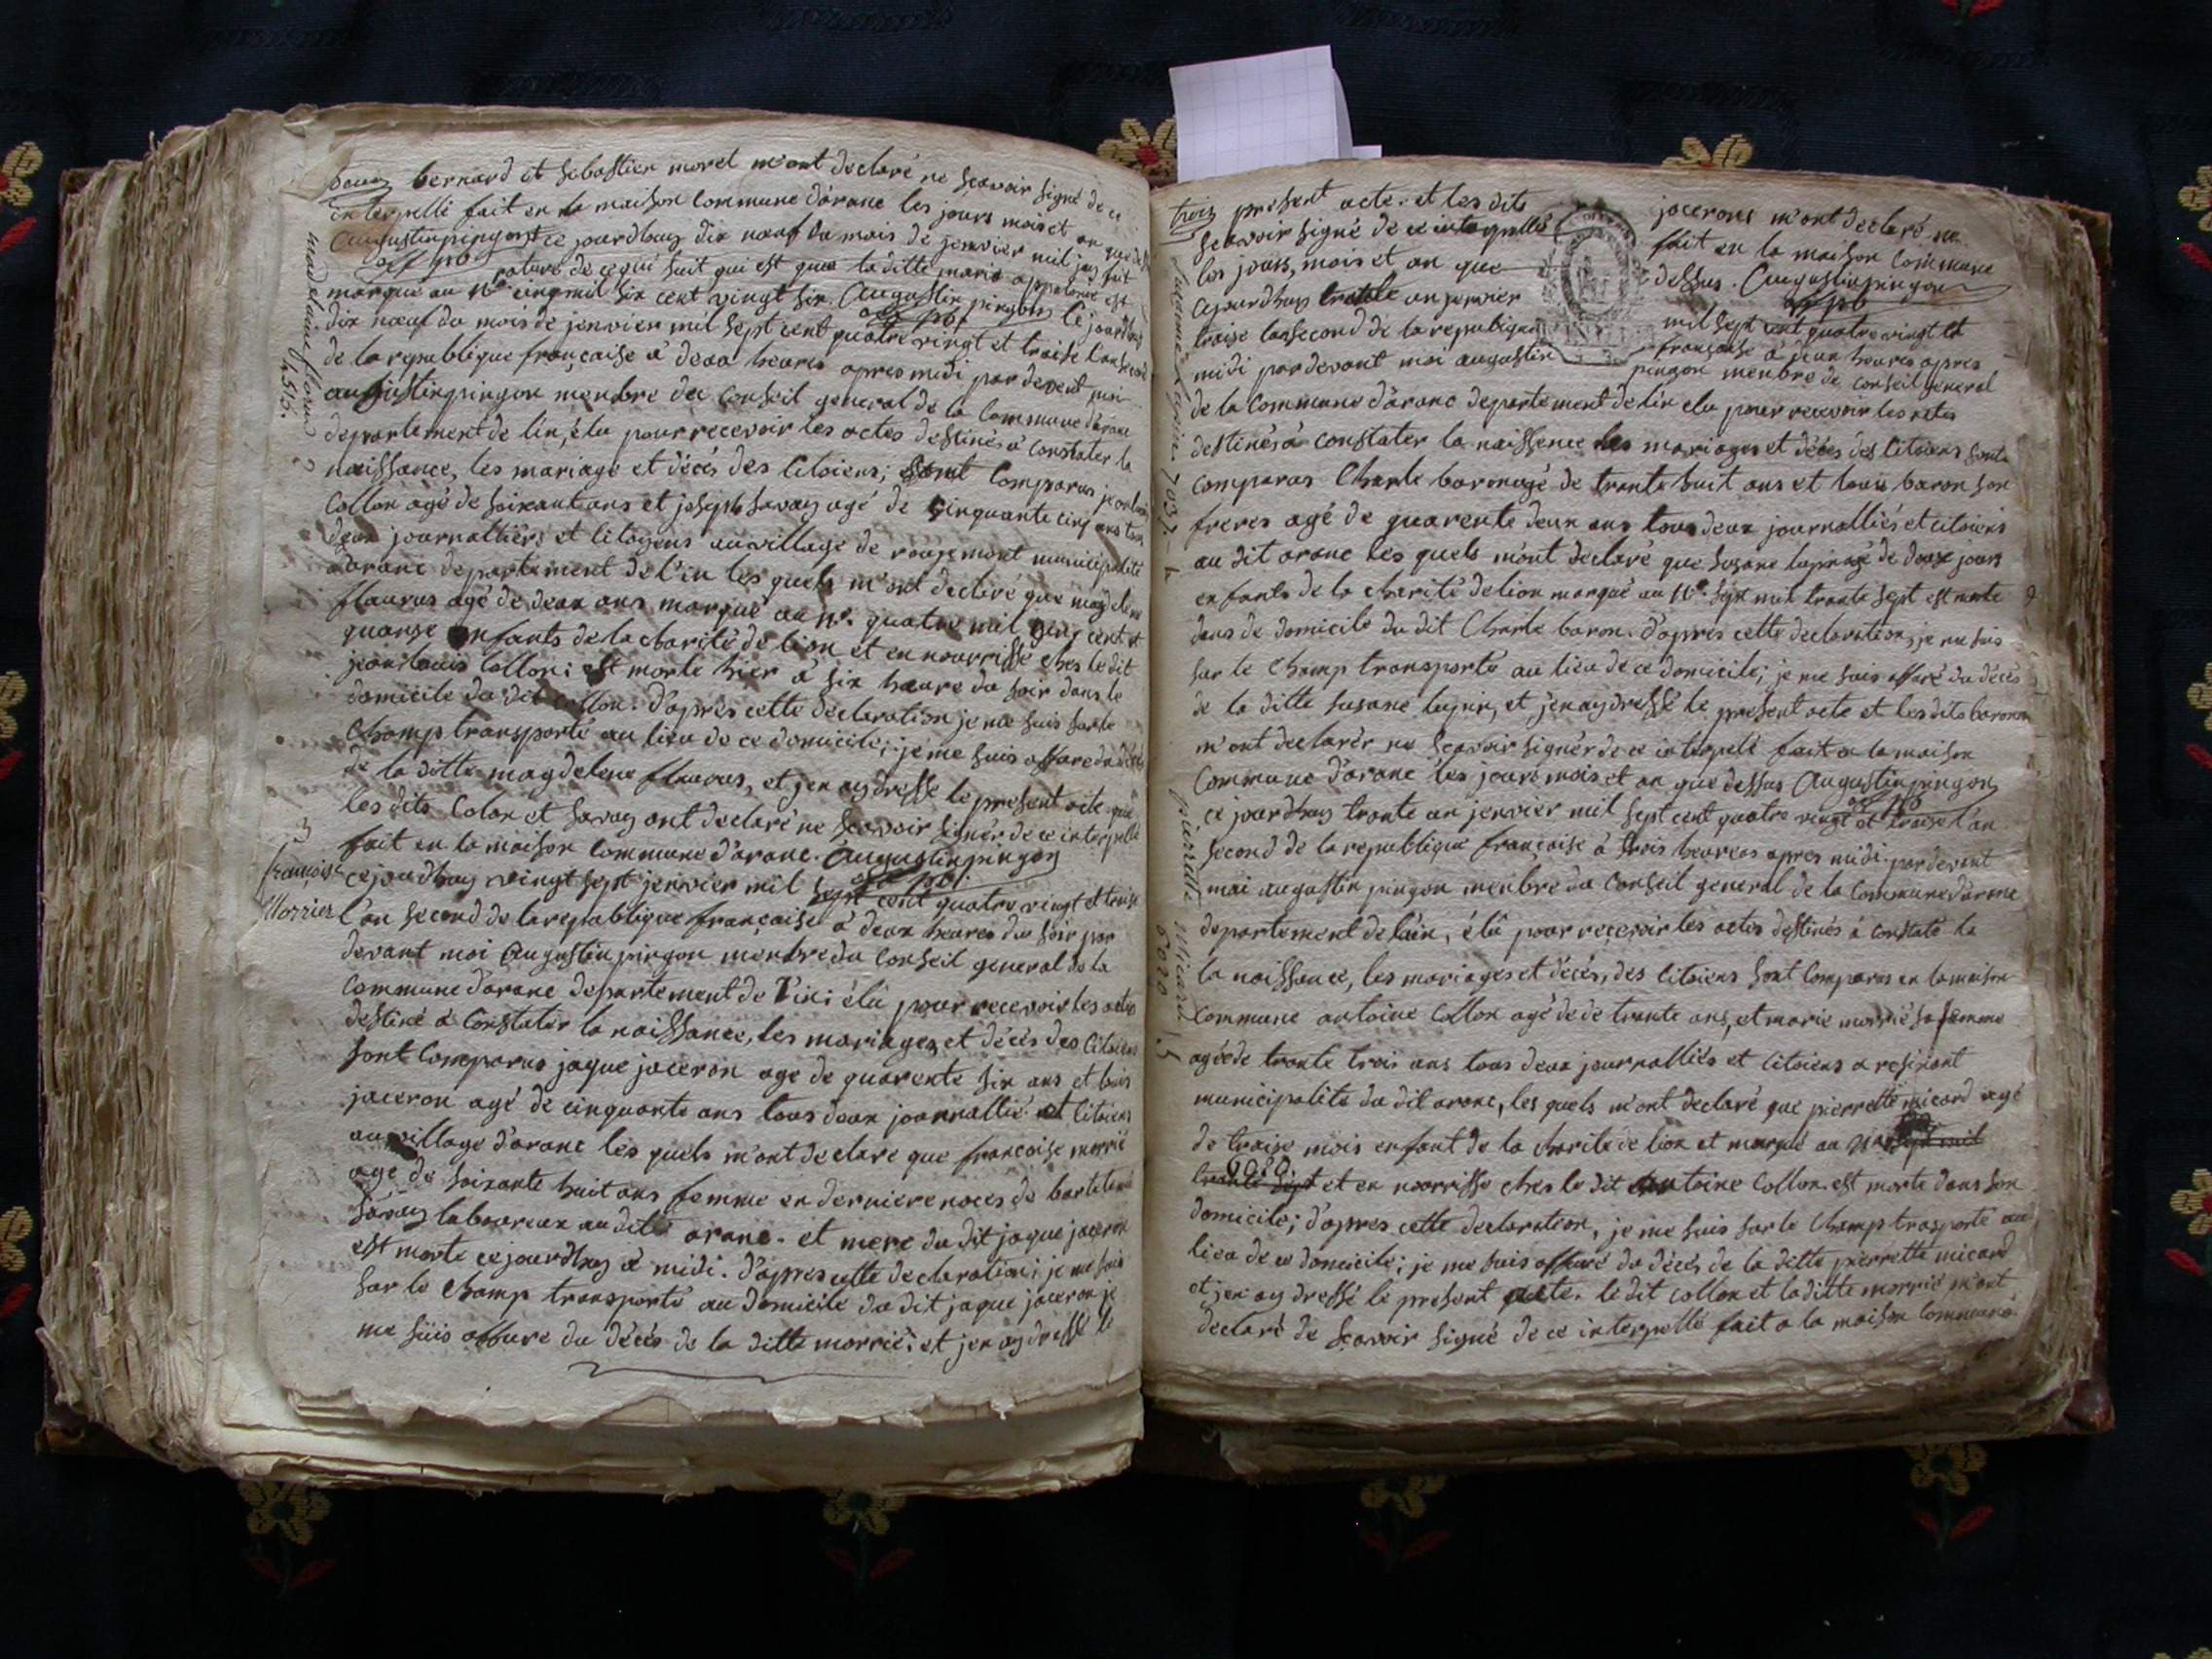 bernard et sebastien morel m'ont declaré ne sçavoir signé de ce
interpellé fait en la maison commune d'arane les jours mois et an que de
Augustin pingon ce jourdhuy dix nœuf du mois de jenvier mil jay fait
off pb. rature de ce qui suit qui est que la ditte marie appolonie est
marqué au N° cinq mil six cent vingt six. Augustin pingon le jourdhuy
dix nœuf du mois de jenvier mil sept cent quatre vingt et traise l'an second
de la republique française a deux heures apres midi par devent moi
augustin pingon menbre du conseil general de la commune d'arane
departement de lin, élu pour recevoir les actes destinés a constater la
naissance, les mariage et décés des citoiens; sont comparus jean louis
Collon agé de soixant ans et joseph savay agé de cinquante cinq ans tous
deux journalliers et citoyens au village de rougemont municipalité
d'arane departement de l'in les quels m'ont declaré que magdelene
flaurus agé de deux ans marqué au N°. quatre mil cinq cent et
quanse enfants de la charité de lion et en nourrisse ches le dit
jean louis Collon: est morte hier a six heure du soir dans le
domicile du dit Collon. d'aprés cette declaration je me suis sur le
champ transporté au lieu de ce domicile; je me suis assure du décés
de la ditte magdelene flaurus, et j'en ay dresse le present acte que
les dits Colon et Savay ont declaré ne sçavoir signér de ce interpellé
fait en la maison commune d'arane. Augustin pingon
off pb.
3
françoise
Morrier
ce jourdhuy vingt sept jenvier mil sept cent quatre vingt et traise
l'an second de la republique française a deux heures du soir par
devant moi Augustin pingon menbre du Conseil general de la
Commune d'arane departement de l'in: élu pour recevoir les actes
destiné a constater la naissance, les mariages et décés des Citoiens
sont comparus jaque jaceron age de quarente six ans et louis
jaceron agé de cinquante ans tous deux journallié et citoiens
au village d'arane les quels m'ont declare que francoise morrié
age de soixante huit ans femme en derniere noces de bartelemi
Savay laboureur au dit arane. et mere du dit jaque jaceron
est morte ce jourdhuy a midi. d'apres cette declaration; je me suis
sur le champ transporté au domicile du dit jaque jaceron je
me suis assure du décés de la ditte morrié: et j'en ay dressé le
4515.
trois present acte. et les dits jacerons m'ont declaré ne
sçavoir signé de ce interpellé fait en la maison commune
les jours, mois et an que dessus. Augustin pingon
off pb
ajourdhuy trente un jenvier mil sept cent quatre vingt et
traise l'an second de la republique française a deux heures apres
midi par devant moi augustin pingon menbre de conseil general
de la Commune d'arane departement de lin elu pour recevoir les actes
destinés a constater la naissence les mariages et décés des citoiens sont
comparus Charle baron agé de trante huit ans et louis baron son
freres agé de quarente deux ans tous deux journalliés et citoiens
au dit arane les quels m'ont declaré que susane lupin agé de doux jours
enfants de la charité de lion marqué au N°. sept mil trante sept est morte
dans de domicile du dit Charle baron. d'apres cette declaration, je me suis
sur le champ transporté au lieu de ce domicile; je me suis assuré du décés
de la ditte susane lupin, et j'en ay dressé le present acte et les dits barons
m'ont declarér ne sçavoir signér de ce interpelé fait a la maison
Commune d'arane les jours mois et an que dessus Augustin pingon
off pb
ce jourdhuy trante un jenvier mil sept cent quatre vingt et traise l'an
second de la republique française a trois heures apres midi par devent
moi augustin pingon menbre du Conseil general de la Commune d'arane
departement de lain, élu pour recevoir les actes destinés a constaté la
la naissance, les mariages et décés, des citoiens sont comparus en la maison
commune antoine Collon agé de de trante ans, et marie morrié sa femme
agée de trante trois ans tous deux journalliés et citoiens a resinant
municipalité du dit arane, les quels m'ont declaré que pierrette micard agé
de traise mois enfant de la charité de lion et marqué au N° sept mil
6020.
trante sept et en nourrisse ches le dit Antoine Collon est morte dans son
domicile; d'apres cette declaration, je me suis sur le champ trasporté au
lieu de ce domicile; je me suis assuré du décés de la ditte pierrette micard
et j'en ay dressé le present acte. le dit collon et la ditte morrié m'ont
declaré de sçavoir signé de ce interpellé fait a la maison Commune
7037. 4
pierrette Micard 5
6020